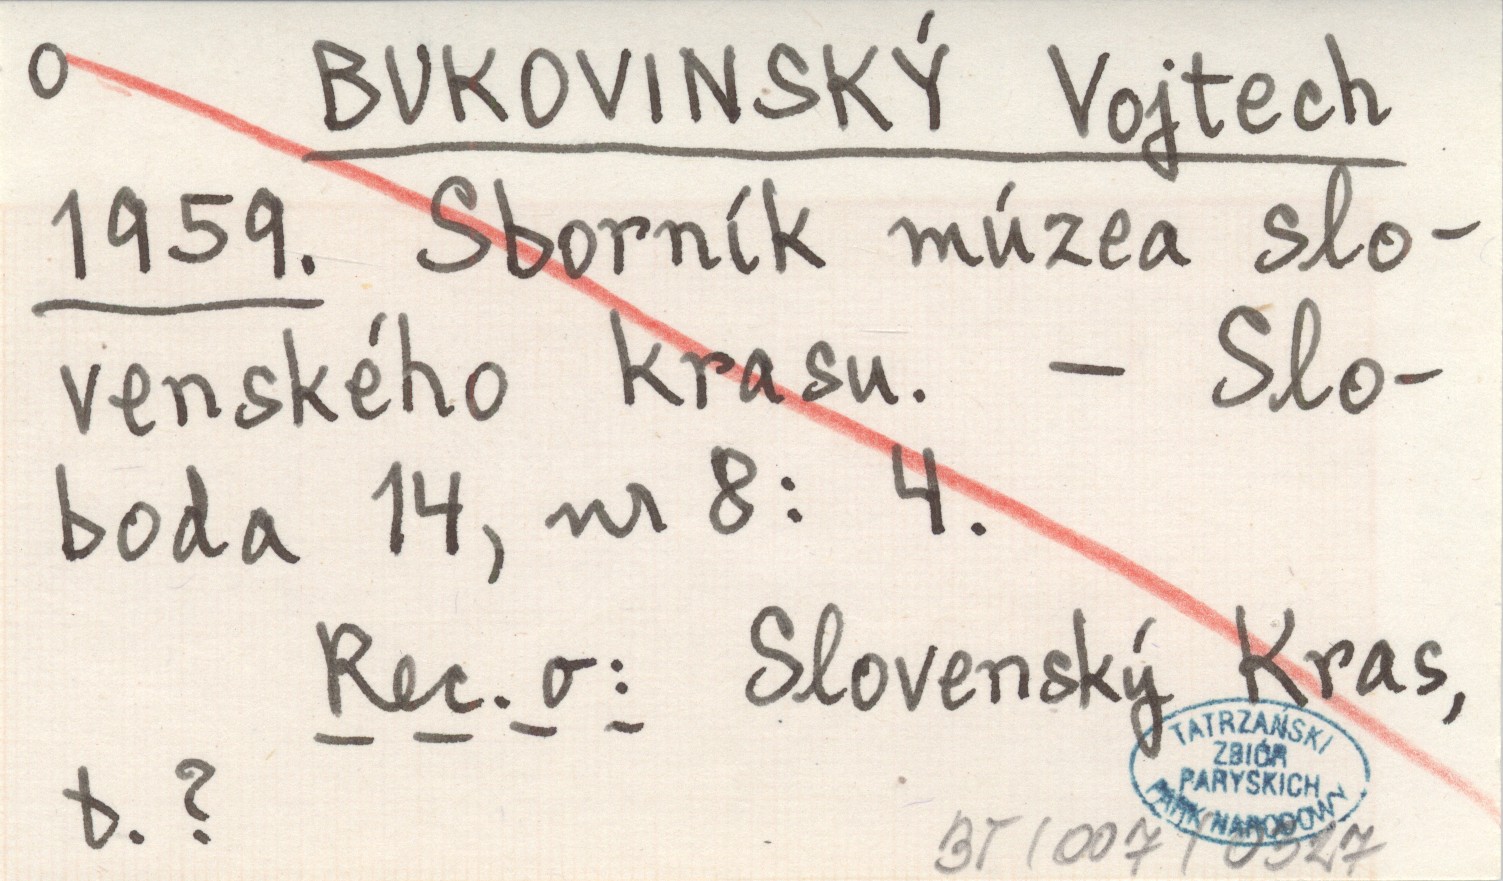 o BUKOVINSKÝ Vojtech
1959. Sborník múzea slo-
venského krasu. – Slo-
boda 14, nr 8: 4.
Rec. o: Slovenský Kras,
t. ?
TATRZAŃSKI
ZBIÓR
PARYSKICH
PARK NARODOWY
BT/007/0327